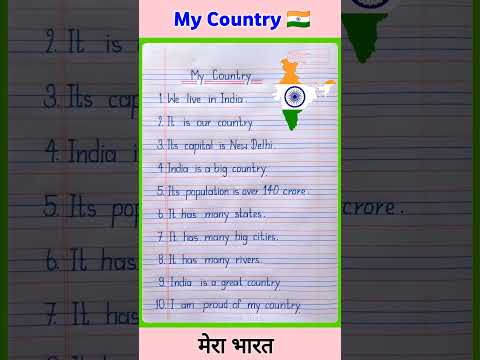 My Country 🇮🇳
My Country
1. We live in India
2. It is our country
3. Its capital is New Delhi.
4. India is a big country
5. Its population is over 140 crore.
6. It has many states.
7. It has many big cities.
8. It has many rivers.
9. India is a great country
10. I am proud of my country
2. It is
3. Its cap
4. India
5. Its pop
6. It has
7. It has
crore.
मेरा भारत